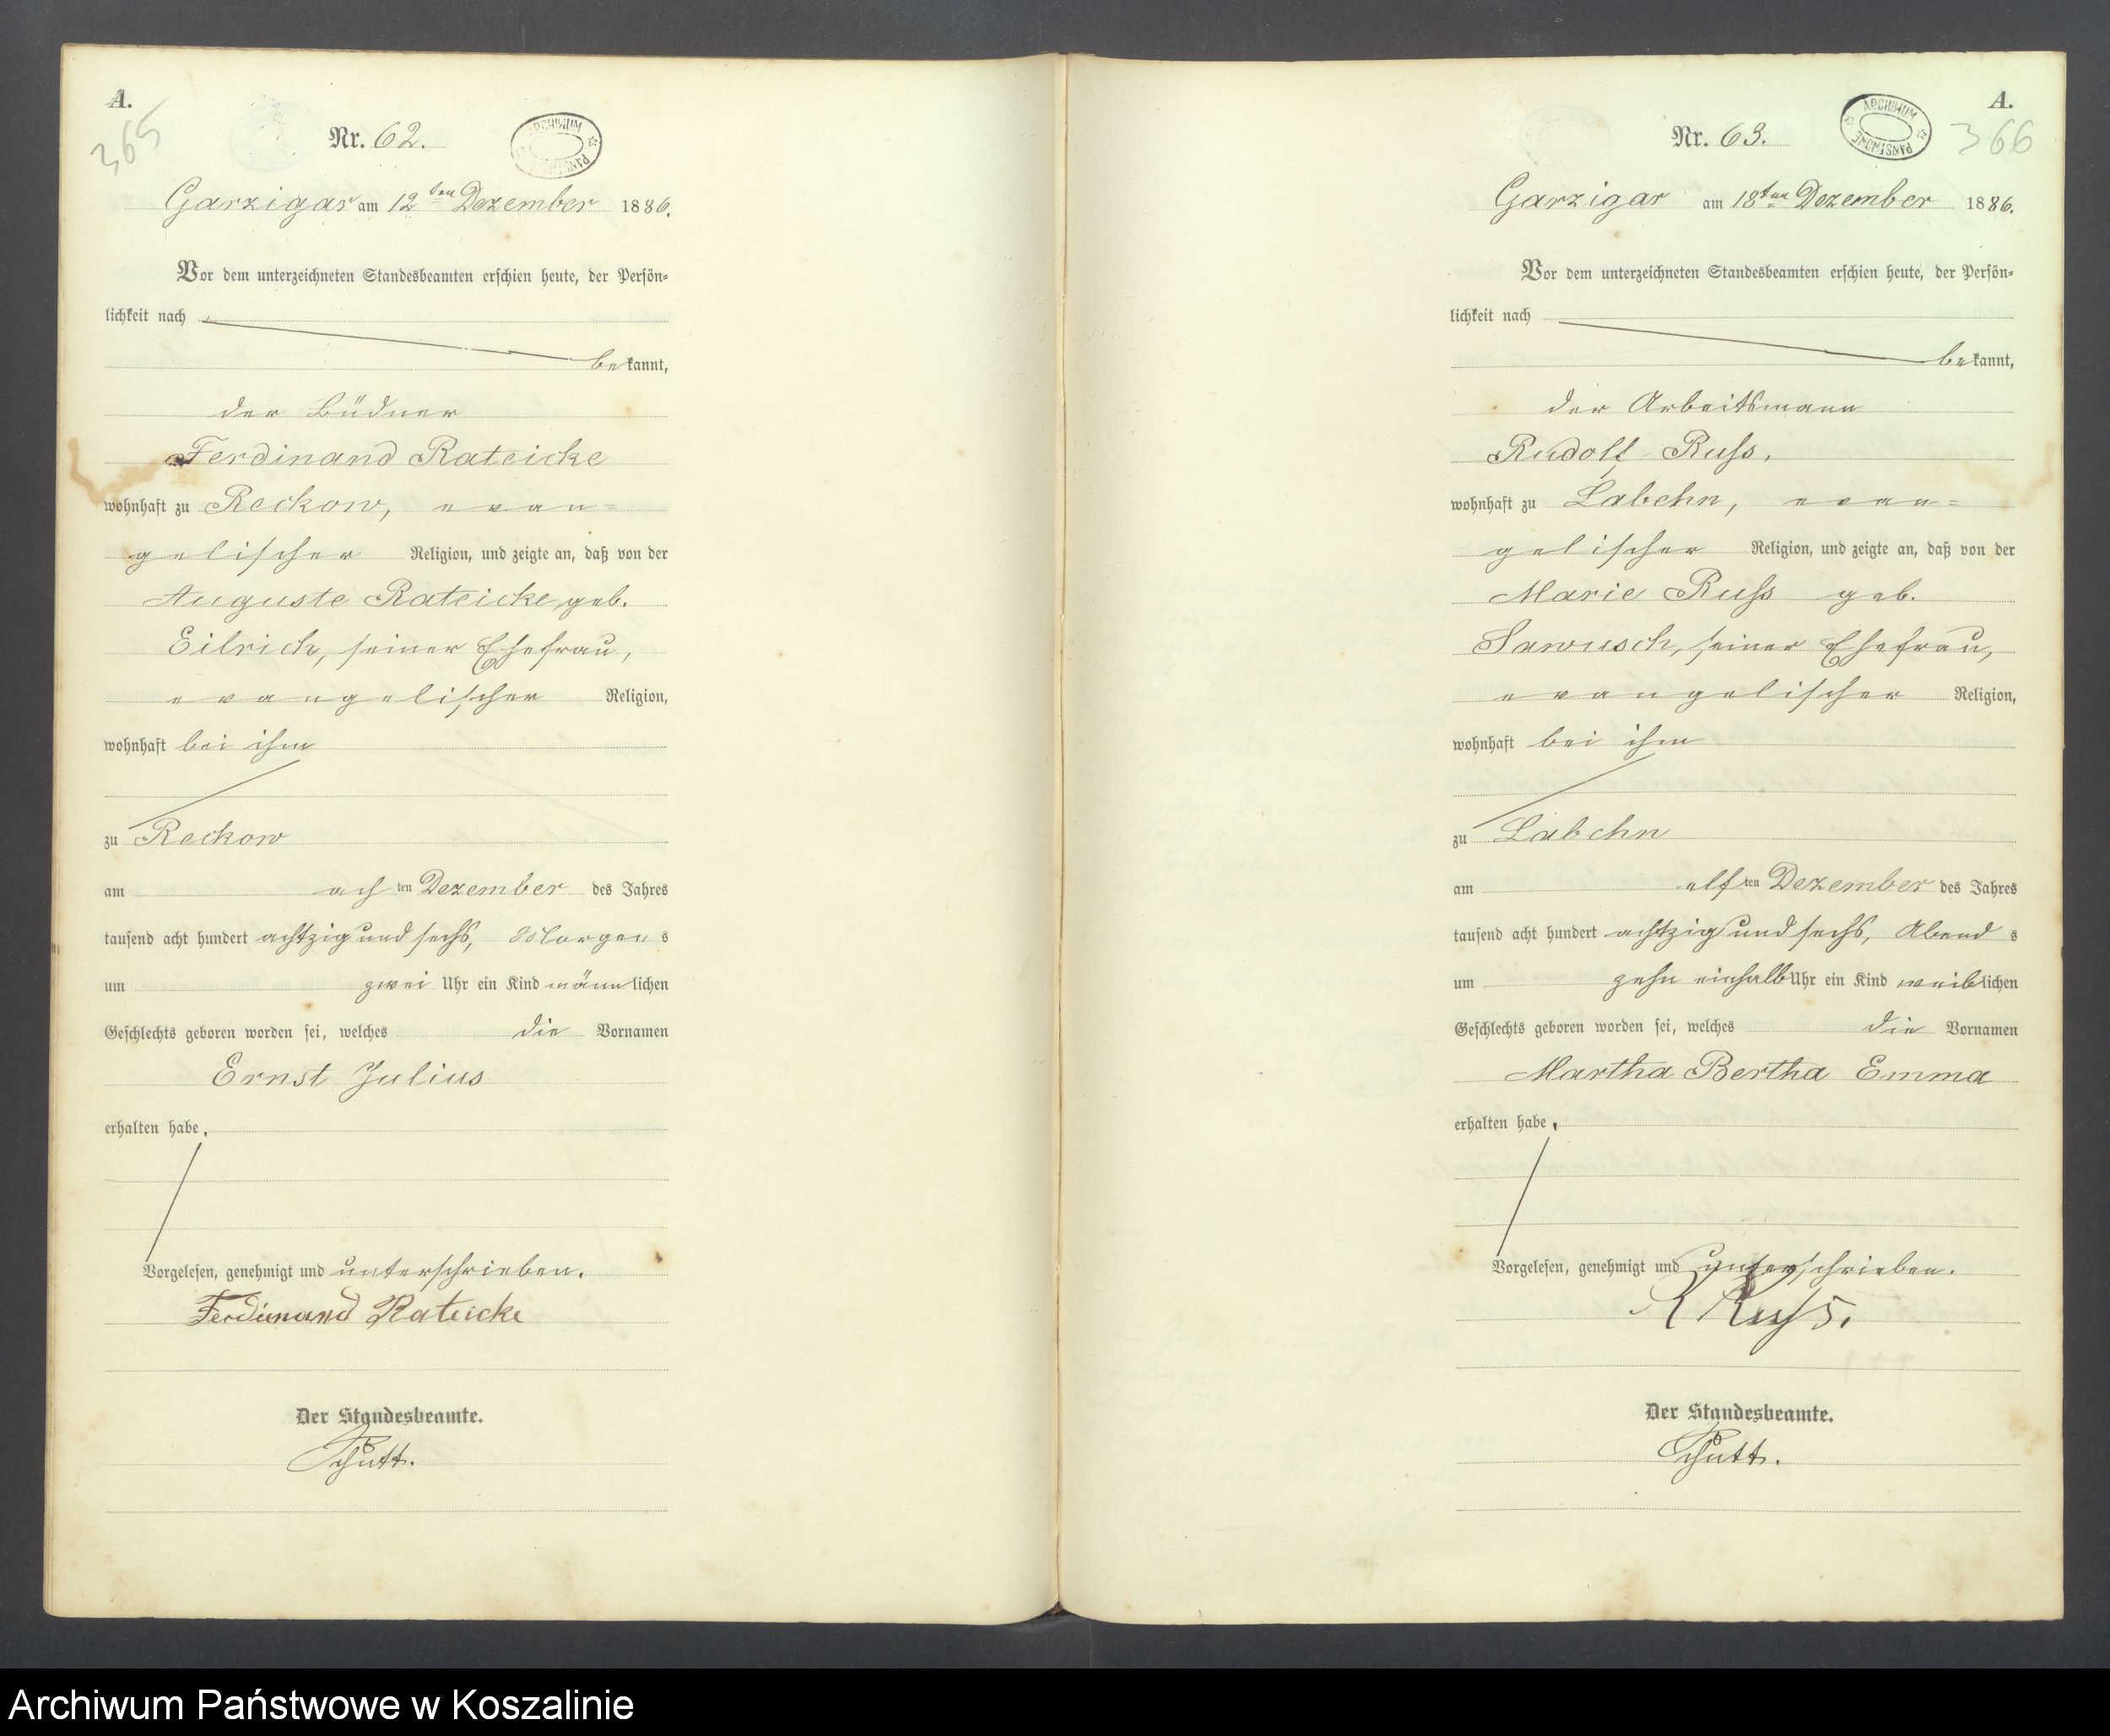 A.
365
Nr. 62.
ARCHIWUM PAŃSTWOWE
Garzigar am 12ten Dezember 1886.
Vor dem unterzeichneten Standesbeamten erschien heute, der Persön-
lichkeit nach
bekannt,
der Büdner
Ferdinand Rateicke
wohnhaft zu Reckow, evan-
gelischer Religion, und zeigte an, daß von der
Auguste Rateicke geb.
Eilrich, seiner Ehefrau,
evangelischer Religion,
wohnhaft bei ihm
zu Reckow
am achten Dezember des Jahres
tausend acht hundert achtzig und sechs, Morgens
um zwei Uhr ein Kind männlichen
Geschlechts geboren worden sei, welches die Vornamen
Ernst Julius
erhalten habe.
Vorgelesen, genehmigt und unterschrieben.
Ferdinand Rateicke
Der Standesbeamte.
Schütt.
A.
366
Nr. 63.
ARCHIWUM PAŃSTWOWE
Garzigar am 18ten Dezember 1886.
Vor dem unterzeichneten Standesbeamten erschien heute, der Persön-
lichkeit nach
bekannt,
der Arbeitsmann
Rudolf Ruß,
wohnhaft zu Labehn, evan-
gelischer Religion, und zeigte an, daß von der
Marie Ruß geb.
Sawusch, seiner Ehefrau,
evangelischer Religion,
wohnhaft bei ihm
zu Labehn
am elften Dezember des Jahres
tausend acht hundert achtzig und sechs, Abends
um zehn einhalb Uhr ein Kind weiblichen
Geschlechts geboren worden sei, welches die Vornamen
Martha Bertha Emma
erhalten habe.
Vorgelesen, genehmigt und unterschrieben.
R Russ.
Der Standesbeamte.
Schütt.
Archiwum Państwowe w Koszalinie